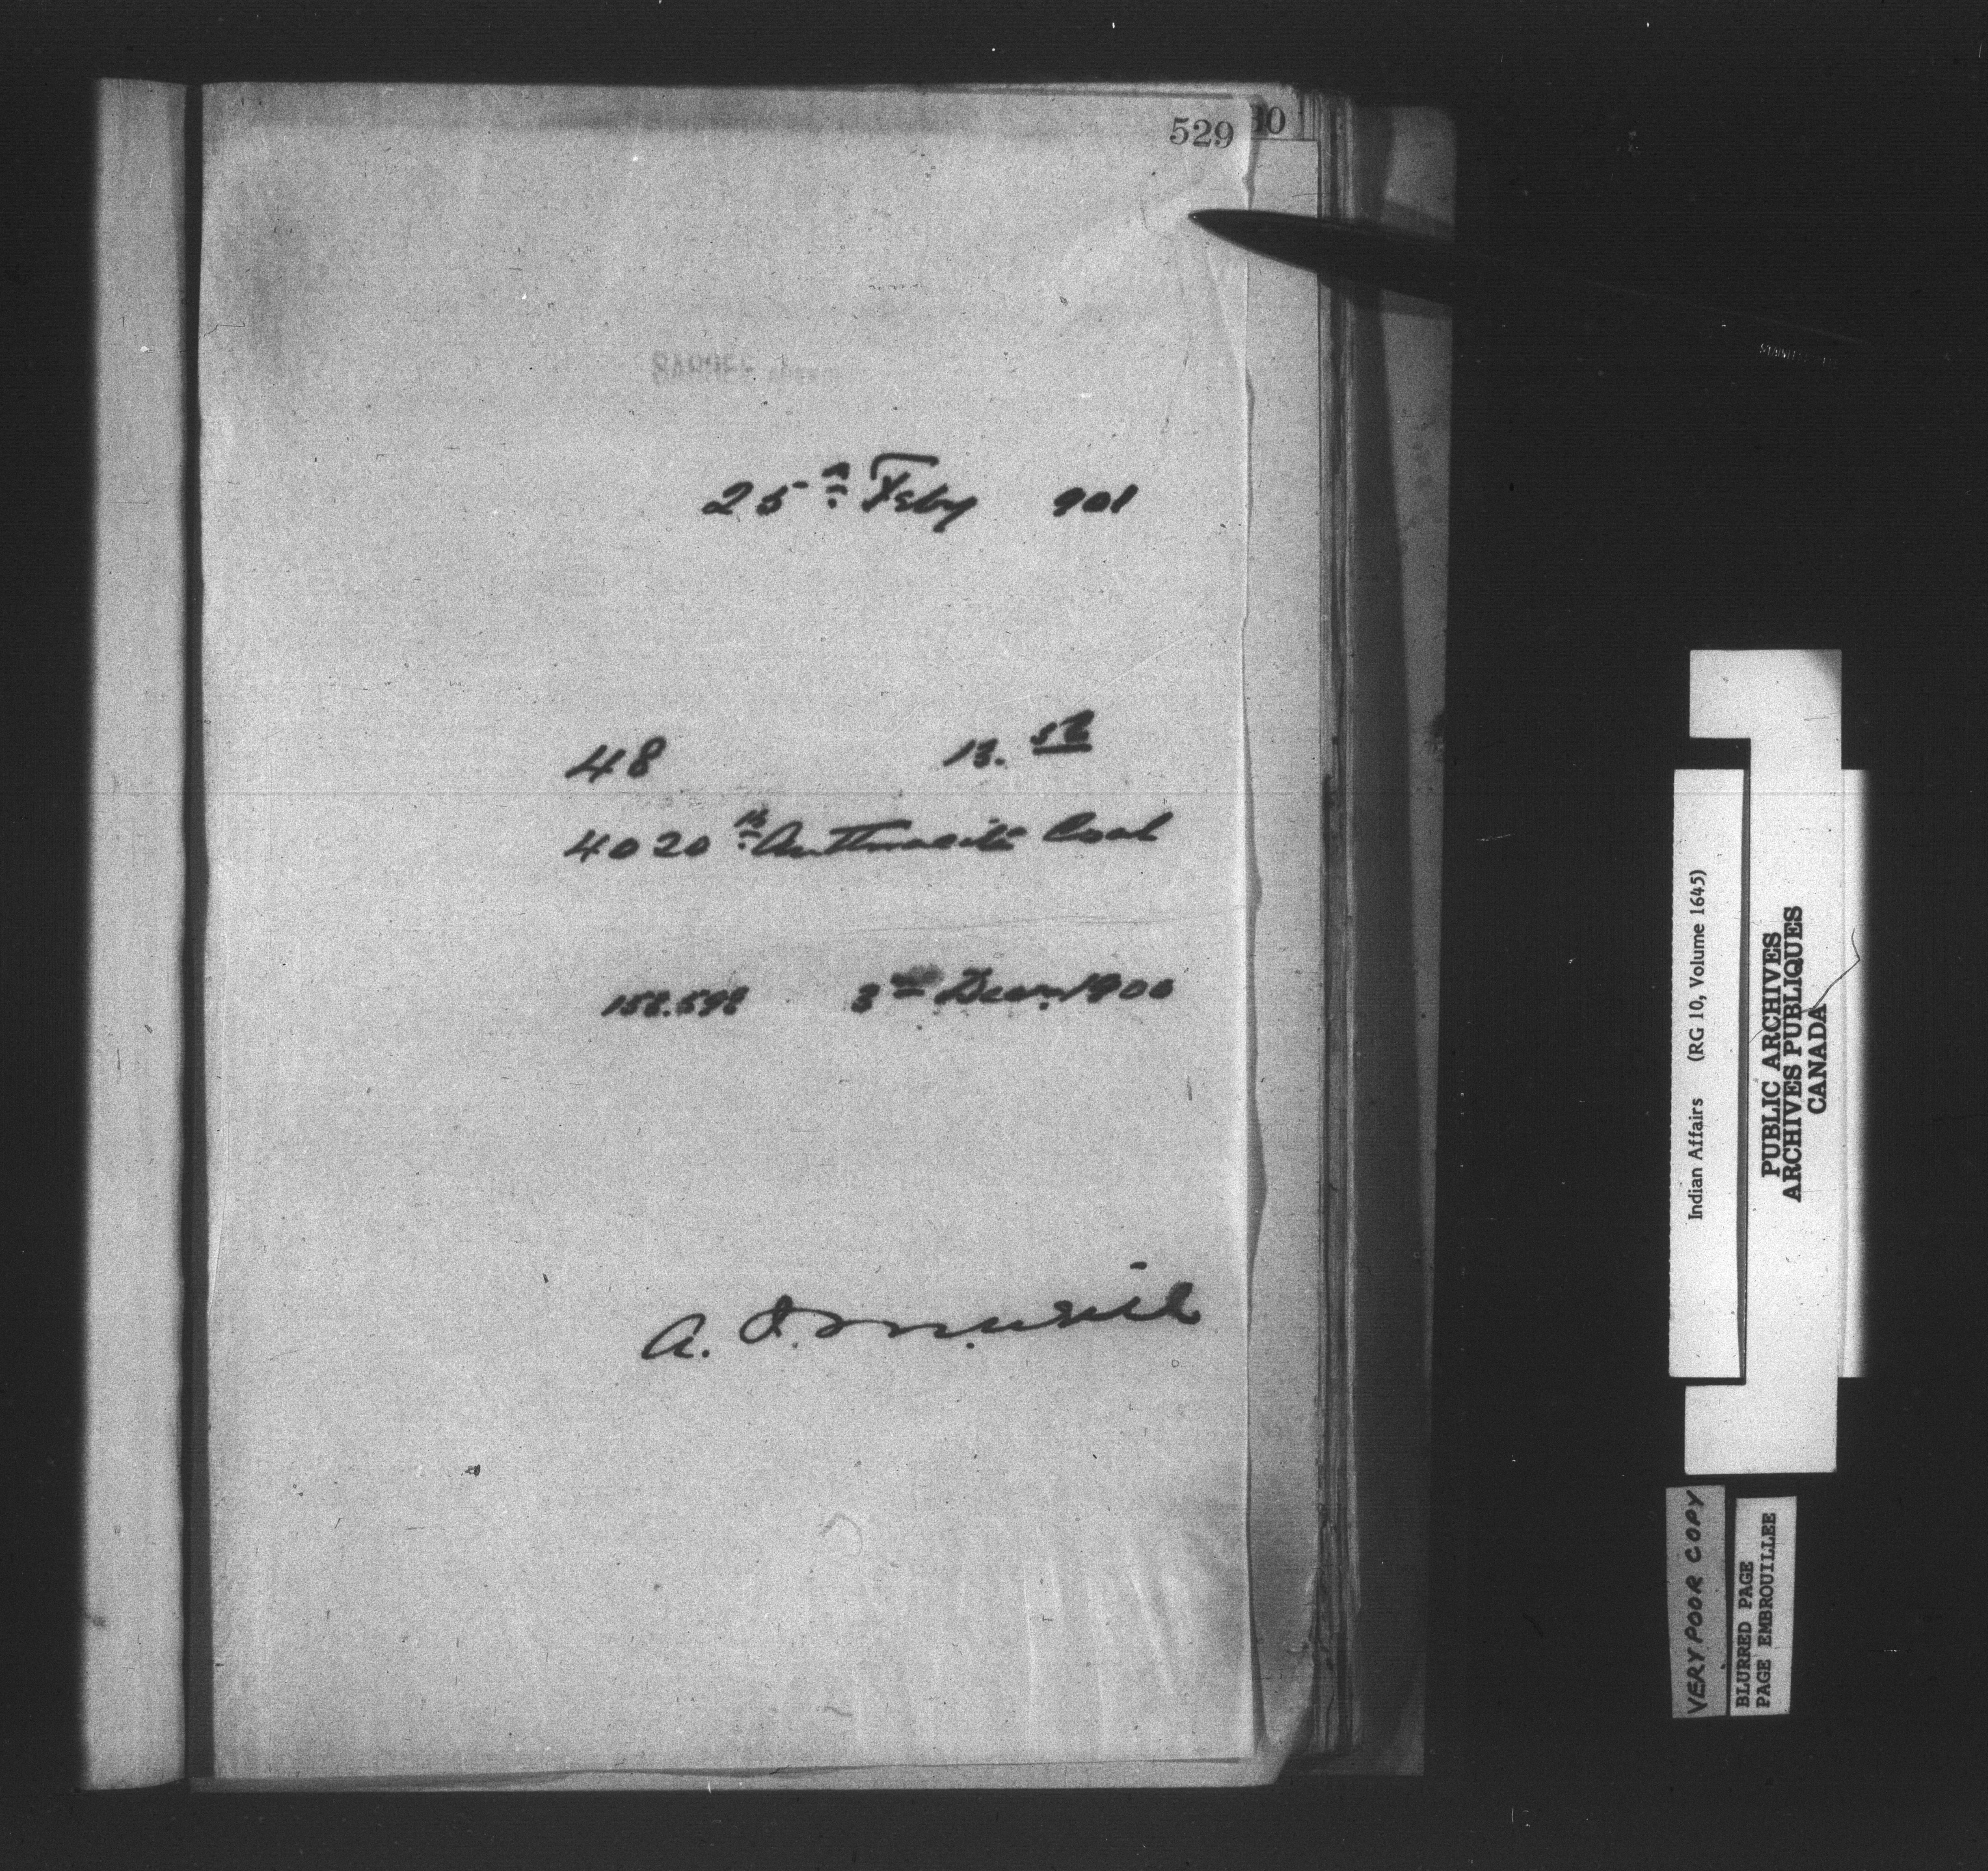 529
30
SARCEE AGENCY
25th Feby 901
48 13. 50
4020 lb Anthracite Coal
158.598 3rd Decr. 1900
A. J. McNeill
Indian Affairs (RG 10, Volume 1645)
PUBLIC ARCHIVES
ARCHIVES PUBLIQUES
CANADA
VERY POOR COPY
BLURRED PAGE
PAGE EMBROUILLEE